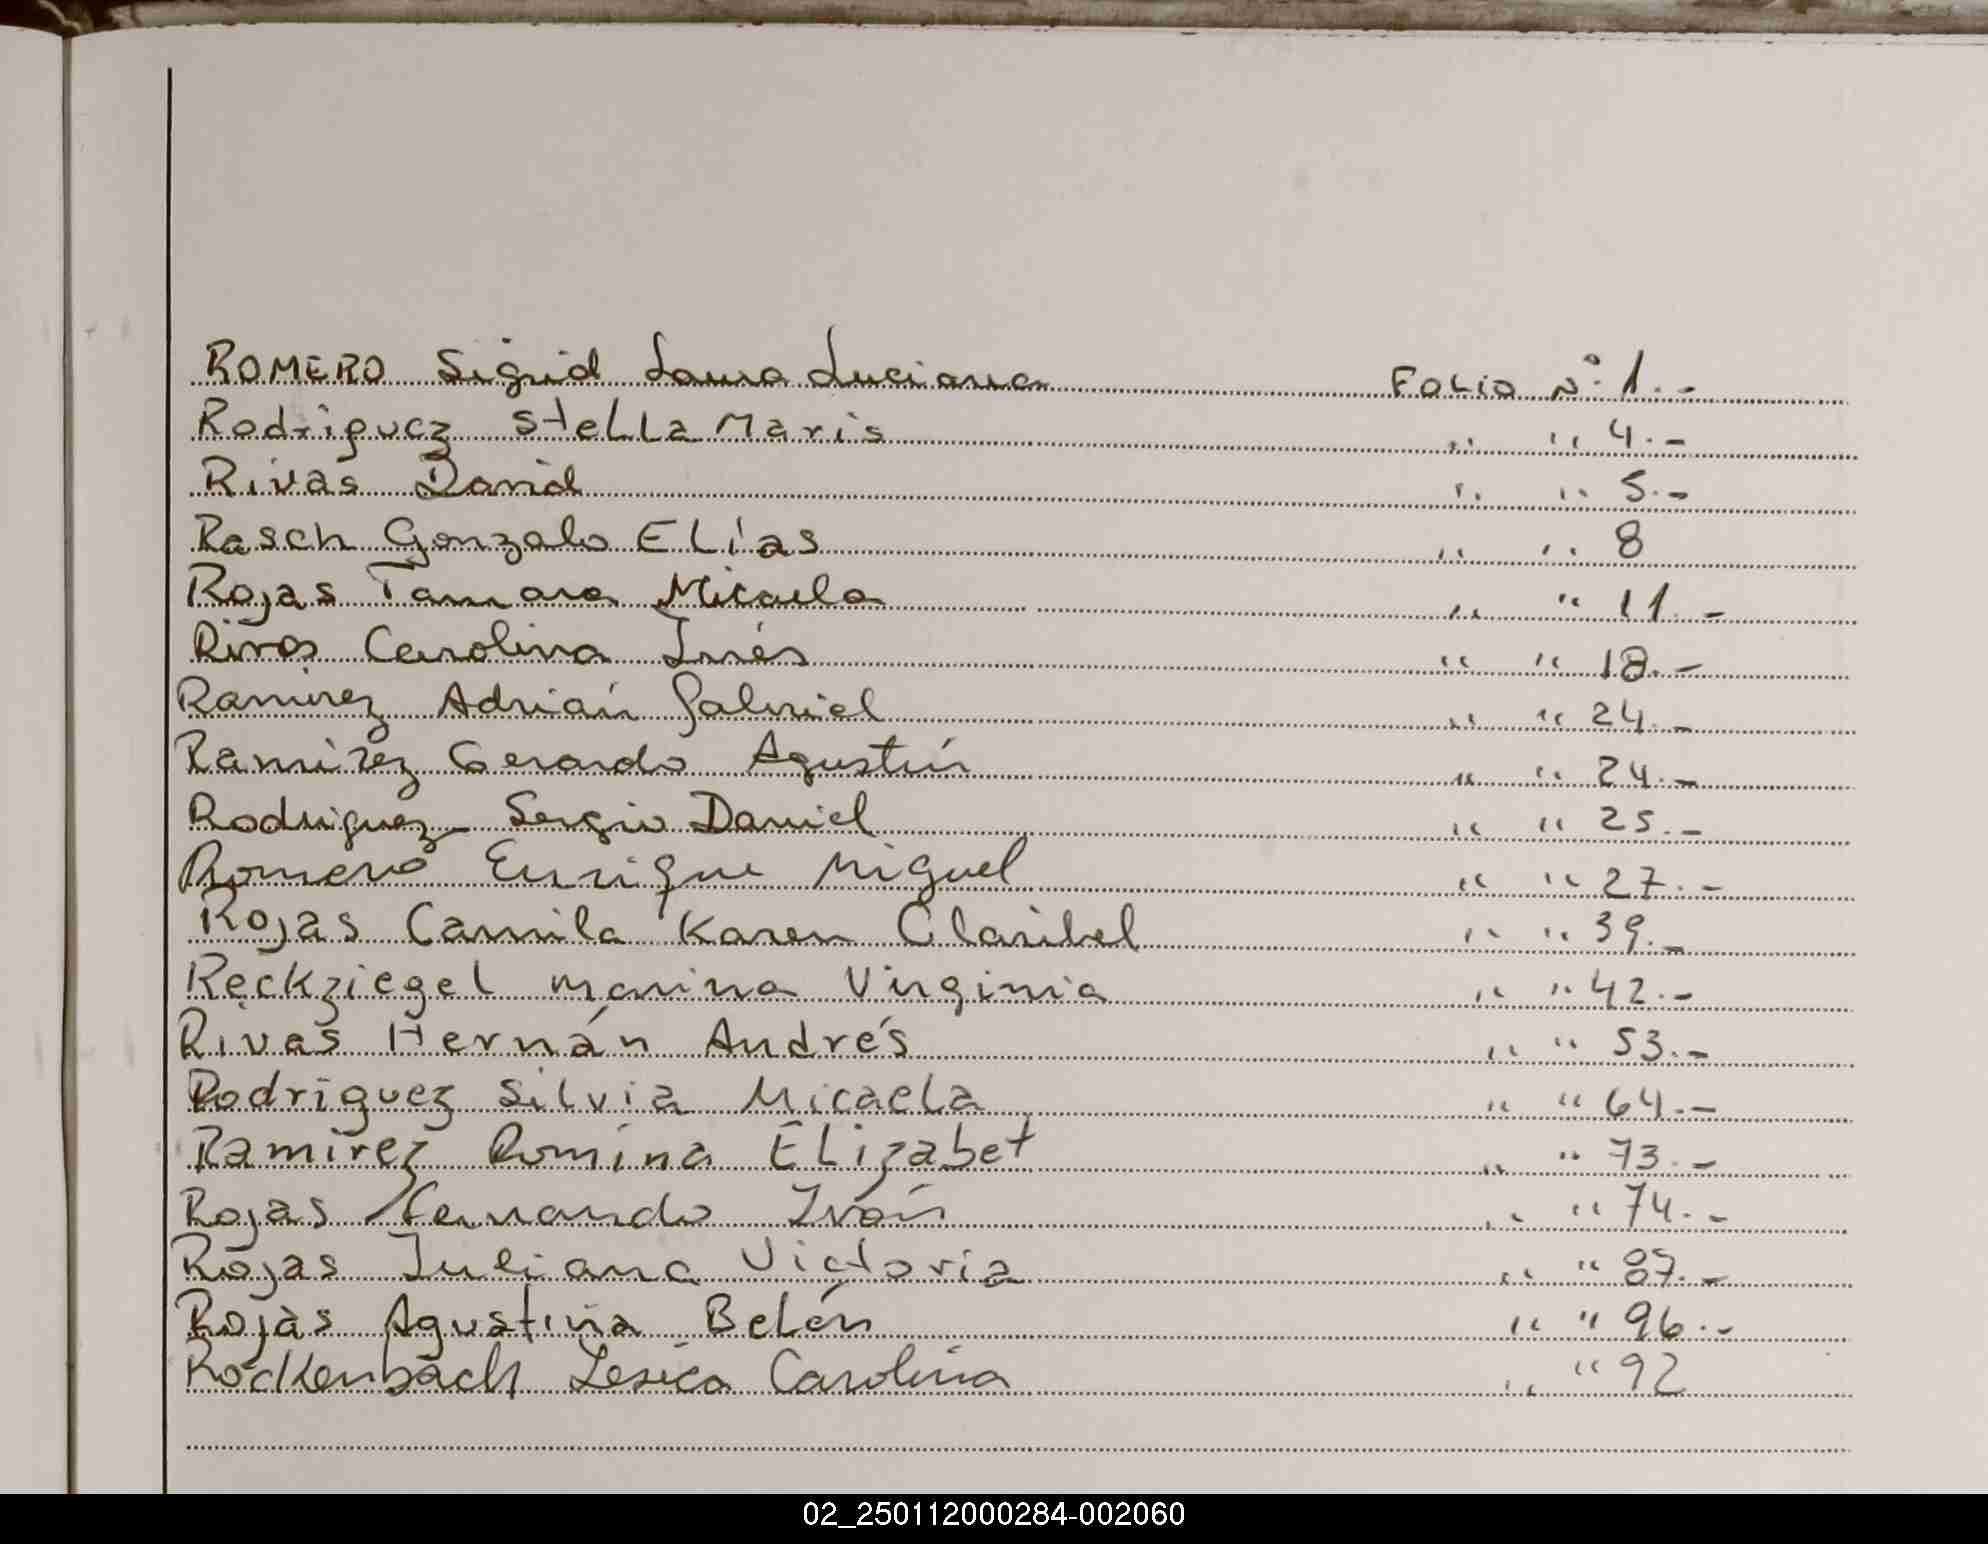 ROMERO Sigrid Laura Luciana Folio Nº 1.-
Rodriguez Stella Maris " " 4.-
Rivas David " " 5.-
Rasch Gonzalo Elías " " 8
Rojas Tamara Micaela " " 11.-
Rivas Carolina Inés " " 18.-
Ramirez Adrián Gabriel " " 24.-
Ramirez Gerardo Agustín " " 24.-
Rodriguez Sergio Daniel " " 25.-
Romero Enrique Miguel " " 27.-
Rojas Camila Karen Claribel " " 39.-
Reckziegel Marina Virginia " " 42.-
Rivas Hernán Andrés " " 53.-
Rodriguez Silvia Micaela " " 64.-
Ramirez Romina Elizabet " " 73.-
Rojas Fernando Iván " " 74.-
Rojas Juliana Victoria " " 87.-
Rojas Agustina Belén " " 96.-
Rockenbach Jesica Carolina " " 92
02_250112000284-002060